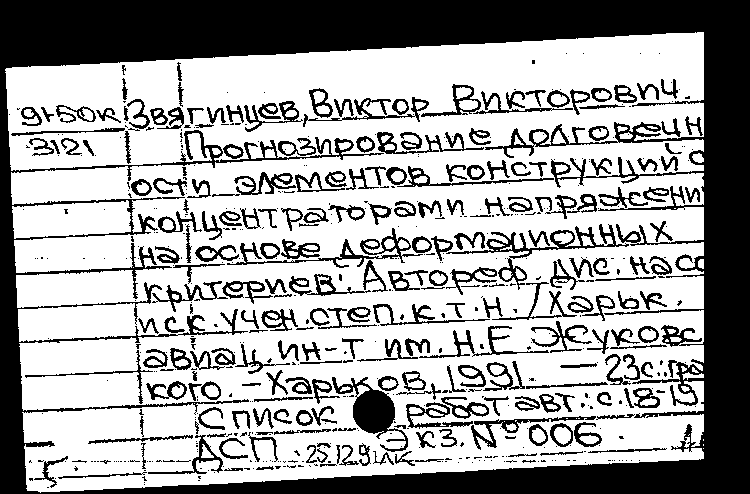 91-50К Звягинцев, Виктор Викторович.
3121 Прогнозирование долговечн
ости элементов конструкций с
концентраторами напряжени
на основе деформационных
критериев: Автореф. дис. на со
иск. учен. степ. к. т. н. / Харьк.
авиац. ин-т им. Н. Е. Жуковс
кого. - Харьков, 1991. - 23с.: гра
Список работ авт.: с. 18-19.
ДСП. 25.12.91 Экз. № 006.